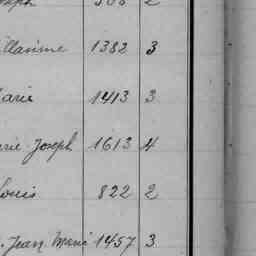 illaume 1382 3
arie 1413 3
rie Joseph 1613 4
ouis 822 2
. Jean Marie 1457 3